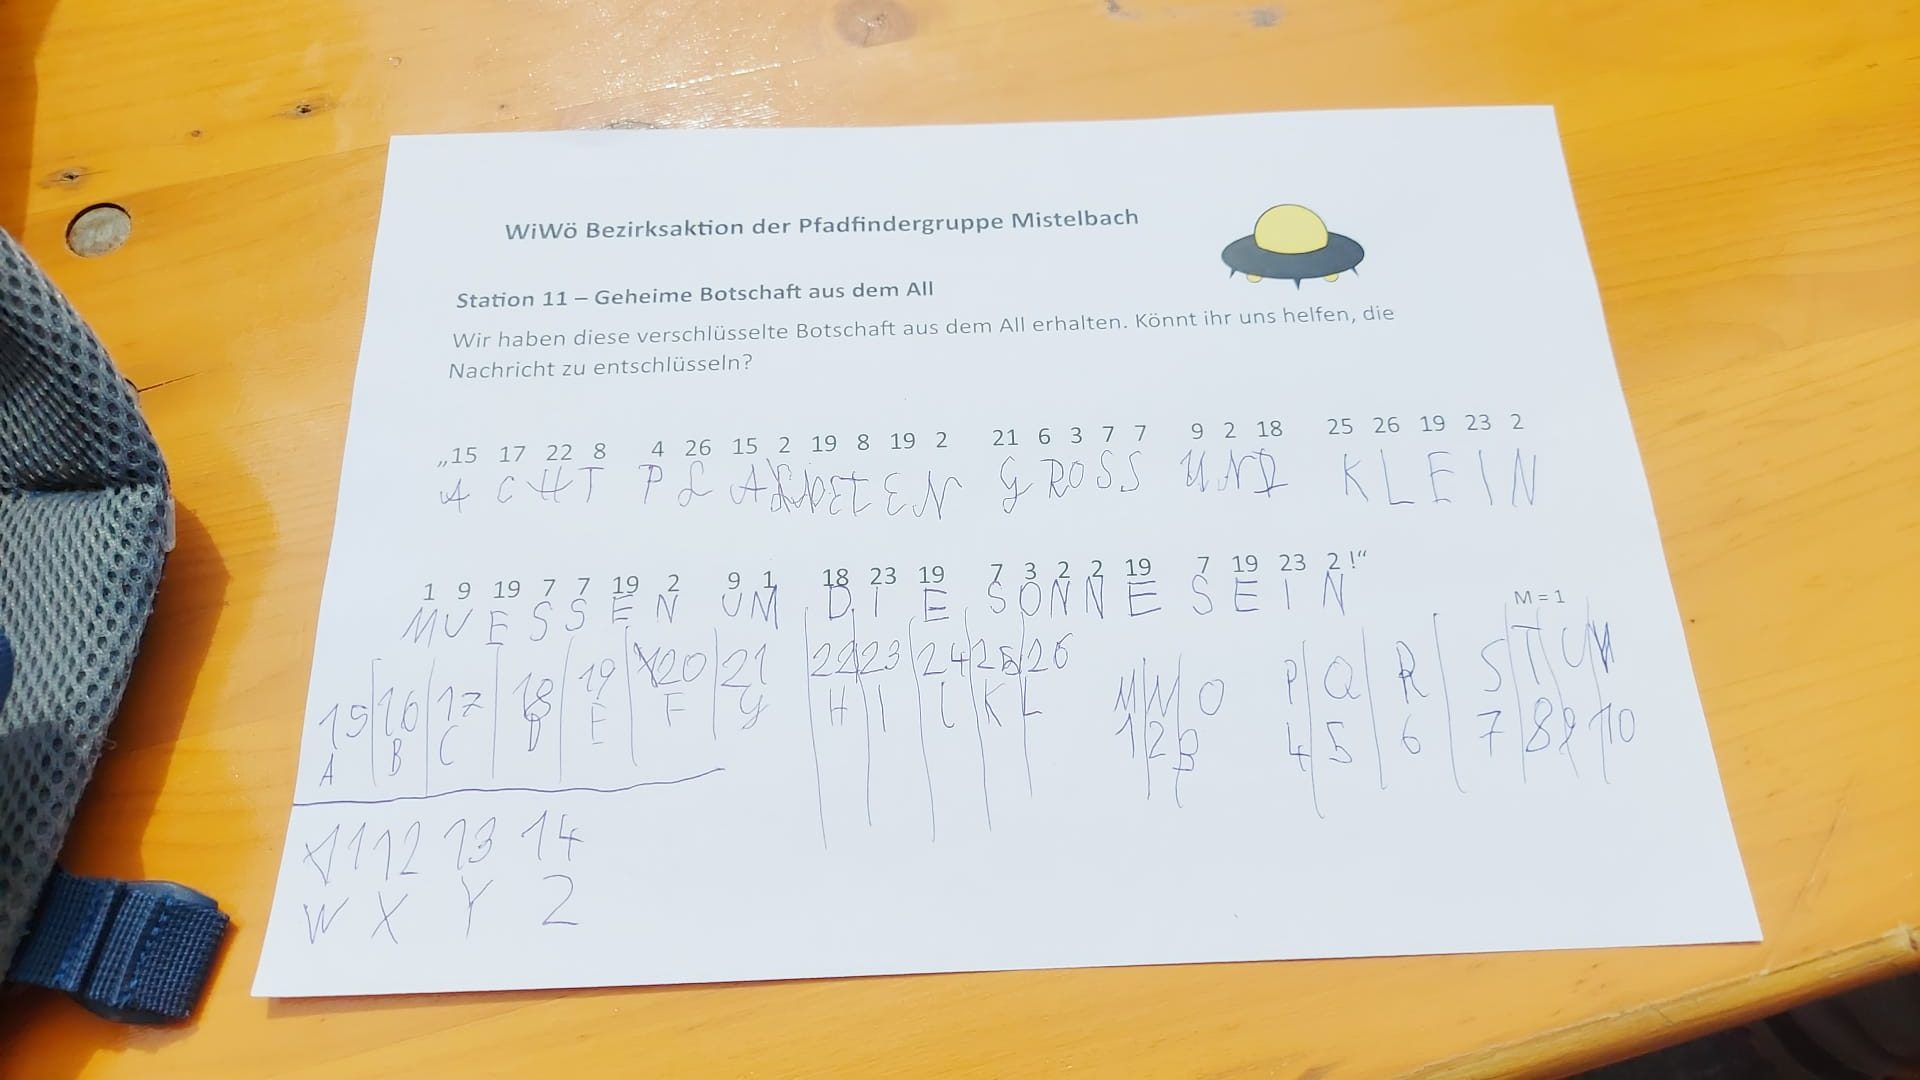 WiWö Bezirksaktion der Pfadfindergruppe Mistelbach
Station 11 – Geheime Botschaft aus dem All
Wir haben diese verschlüsselte Botschaft aus dem All erhalten. Könnt ihr uns helfen, die
Nachricht zu entschlüsseln?
„15 17 22 8 4 26 15 2 19 8 19 2 21 6 3 7 7 9 2 18 25 26 19 23 2
A C H T P L A N E T E N G R O S S U N D K L E I N
1 9 19 7 7 19 2 9 1 18 23 19 7 3 2 2 19 7 19 23 2 !“
M U E S S E N U M D I E S O N N E S E I N
M = 1
15 16 17 18 19 20 21 22 23 24 25 26
A B C D E F G H I J K L
M N O P Q R S T U V
1 2 3 4 5 6 7 8 9 10
11 12 13 14
W X Y Z